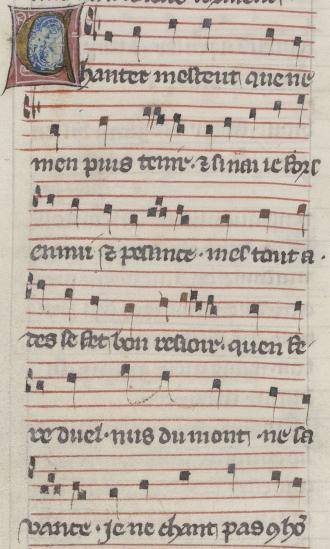 Chanter mestuet que ne
men puis tenir · ⁊ si nai ie fors
ennui ⁊ pesance · mes tout a ·
des se fet bon resioir · quen fe
re duel · nus du mont · ne sa
vance · Je ne chant pas ꝯ hō